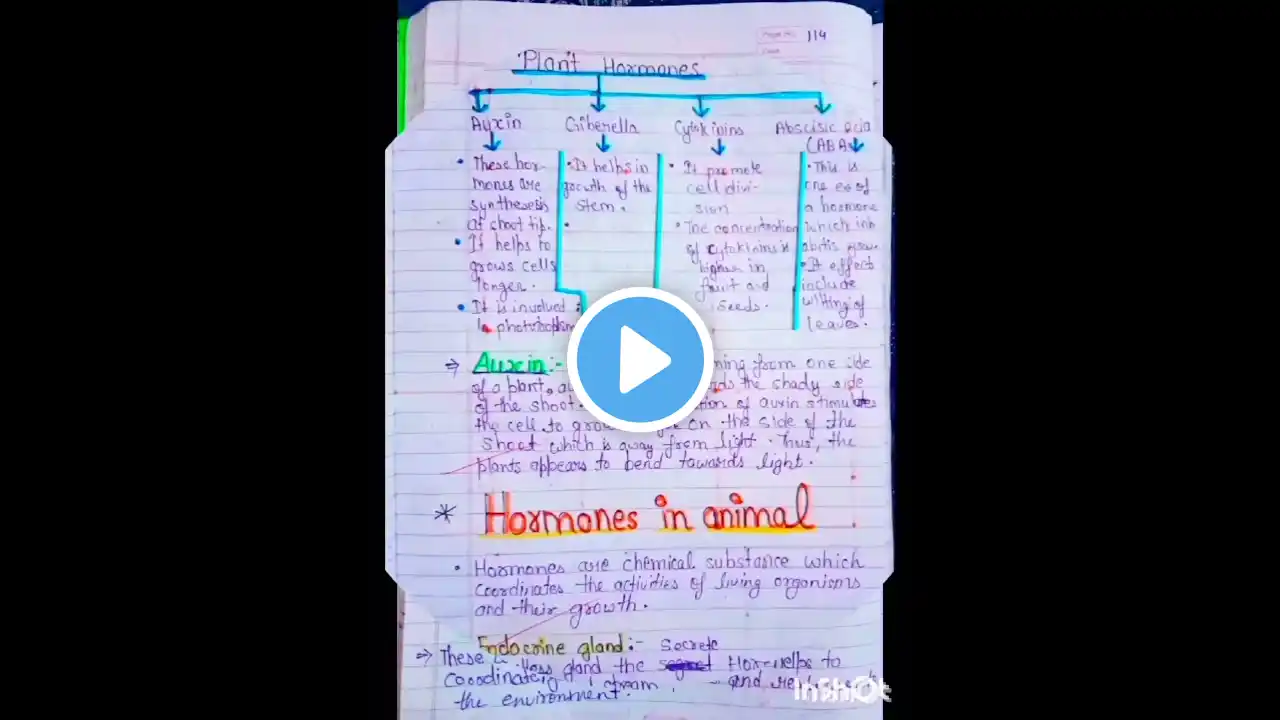 114
Plant Hormones
Auxin Giberella Cytokinins Abscisic acid
(ABA)
• These hor-
mones are
synthesesis
at shoot tip.
• It helps to
grows cells
longer.
• It is involved
photo
• It helps in
growth of the
stem.
• It promote
cell divi-
sion
• The concentration
of cytokinins is
higher in
fruit and
seeds.
• This is
one ex of
a hormone
which inh
abitis grow.
• It effect
include
wilting of
leaves.
⇒ Auxin:- ming from one side
of a plant, the shady side
of the shoot. of auxin stimulates
the cell to grow on the side of the
shoot which is away from light. Thus, the
plants appears to bend towards light.
* Hormones in animal :
• Hormones are chemical substance which
coordinates the activities of living organisms
and their growth.
Endocrine gland:- Secrete
⇒ These less gland the to
Coordinate and
the environment.
InShOt